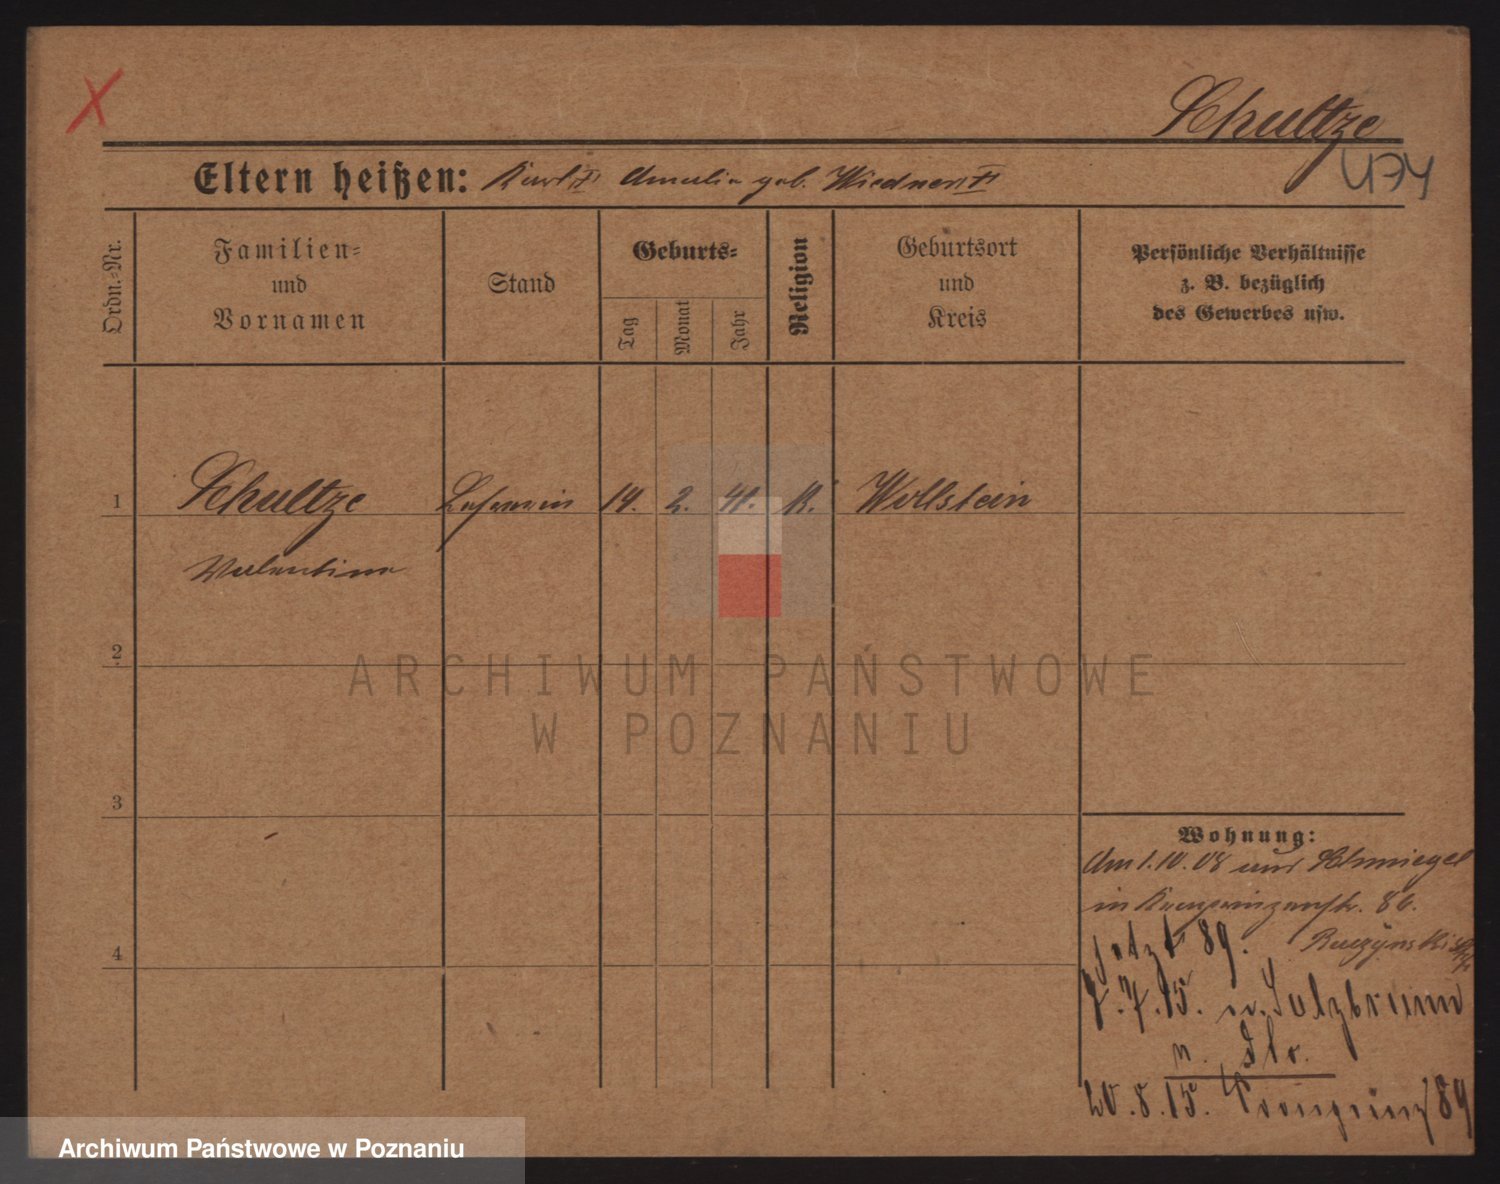 Schultze
474
Eltern heißen: Karl † Amalia geb. Wiedner †
Ordn.-Nr.
Familien-
und
Vornamen
Stand
Geburts-
Tag
Monat
Jahr
Religion
Geburtsort
und
Kreis
Persönliche Verhältnisse
z. B. bezüglich
des Gewerbes usw.
1 Schultze Lehrerin 14. 2. 41. K. Wollstein
Valentine
2
ARCHIWUM PAŃSTWOWE
W POZNANIU
3
4
Wohnung:
Am 1.10.08 aus Schmiegel
in Kronprinzenstr. 86.
jetzt 89.
7.7.15. n. Salzbrunn
20.8.15. Kronprinz 89
Archiwum Państwowe w Poznaniu